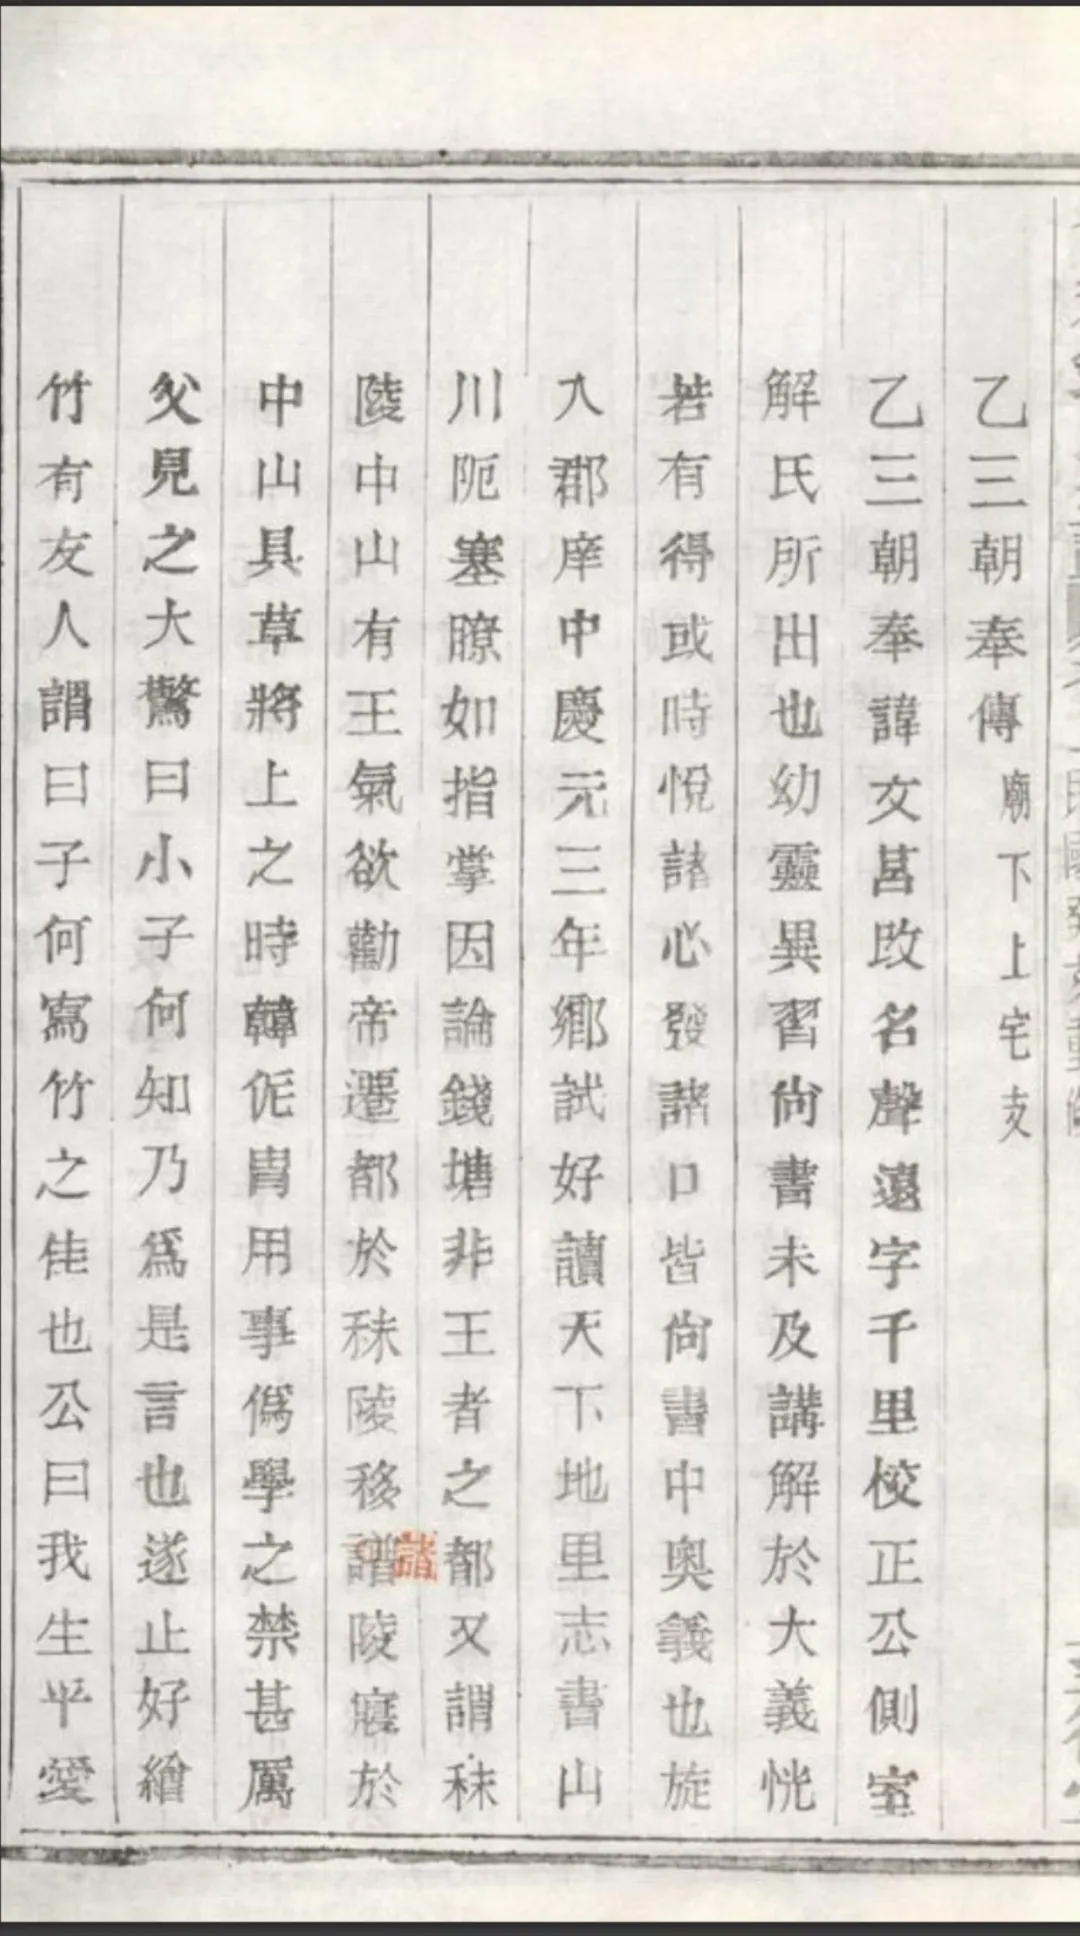 乙三朝奉傳 廟下上宅支
乙三朝奉諱文莒改名聲遠字千里校正公側室
解氏所出也幼靈異習尙書未及講解於大義恍
若有得或時悅諸心發諸口皆尙書中奧義也旋
入郡庠中慶元三年鄉試好讀天下地里志書山
川阨塞瞭如指掌因論錢塘非王者之都又謂秣
陵中山有王氣欲勸帝遷都於秣陵移譜陵寢於
諸
中山具草將上之時韓侂胄用事僞學之禁甚厲
父見之大驚曰小子何知乃爲是言也遂止好繪
竹有友人謂曰子何寫竹之佳也公曰我生平愛